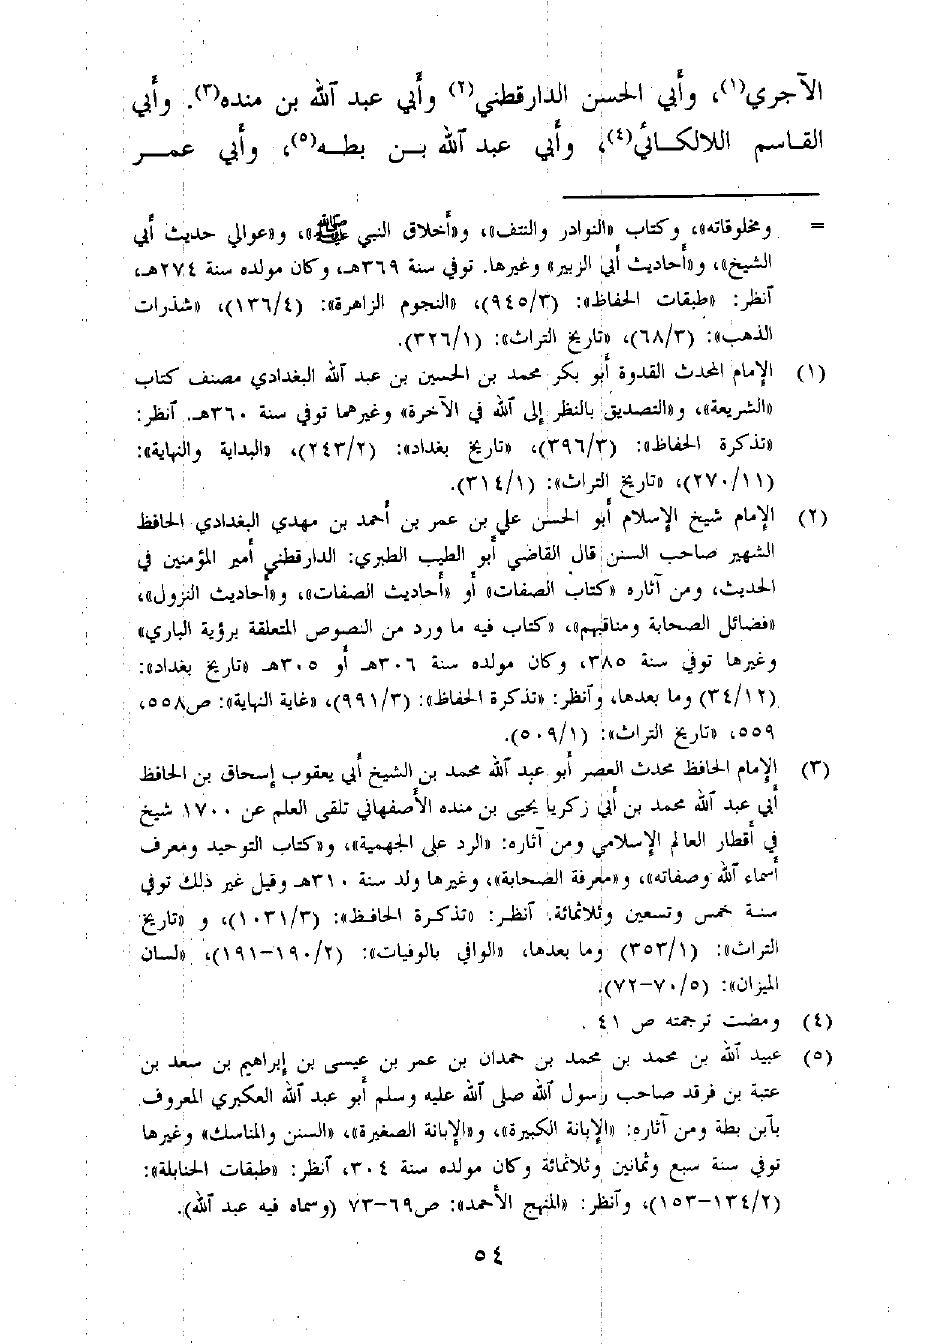 الآجري(١)، وأبي الحسن الدارقطني(٢) وأبي عبد الله بن منده(٣). وأبي
القاسم اللالكائي(٤)، وأبي عبد الله بن بطه(٥)، وأبي عمر
= ومخلوقاته»، وكتاب «النوادر والنتف»، و«أخلاق النبي ﷺ»، و«عوالي حديث أبي
الشيخ»، و«أحاديث أبي الزبير» وغيرها. توفي سنة ٣٦٩هـ، وكان مولده سنة ٢٧٤هـ،
أنظر: «طبقات الحفاظ»: (٩٤٥/٣)، «النجوم الزاهرة»: (١٣٦/٤)، «شذرات
الذهب»: (٦٨/٣)، «تاريخ التراث»: (٣٢٦/١).
(١) الإمام المحدث القدوة أبو بكر محمد بن الحسين بن عبد الله البغدادي مصنف كتاب
«الشريعة»، و«التصديق بالنظر إلى الله في الآخرة» وغيرهما توفي سنة ٣٦٠هـ. أنظر:
«تذكرة الحفاظ»: (٣٩٦/٣)، «تاريخ بغداد»: (٢٤٣/٢)، «البداية والنهاية»:
(٢٧٠/١١)، «تاريخ التراث»: (٣١٤/١).
(٢) الإمام شيخ الإسلام أبو الحسن علي بن عمر بن أحمد بن مهدي البغدادي الحافظ
الشهير صاحب السنن قال القاضي أبو الطيب الطبري: الدارقطني أمير المؤمنين في
الحديث، ومن آثاره «كتاب الصفات» أو «أحاديث الصفات»، و«أحاديث النزول»،
«فضائل الصحابة ومناقبهم»، «كتاب فيه ما ورد من النصوص المتعلقة برؤية الباري»
وغيرها توفي سنة ٣٨٥، وكان مولده سنة ٣٠٦هـ أو ٣٠٥هـ «تاريخ بغداد»:
(٣٤/١٢) وما بعدها، وأنظر: «تذكرة الحفاظ»: (٩٩١/٣)، «غاية النهاية»: ص٥٥٨،
٥٥٩، «تاريخ التراث»: (٥٠٩/١).
(٣) الإمام الحافظ محدث العصر أبو عبد الله محمد بن الشيخ أبي يعقوب إسحاق بن الحافظ
أبي عبد الله محمد بن أبي زكريا يحيى بن منده الأصفهاني تلقى العلم عن ١٧٠٠ شيخ
في أقطار العالم الإسلامي ومن آثاره: «الرد على الجهمية»، و«كتاب التوحيد ومعرف
أسماء الله وصفاته»، و«معرفة الصحابة»، وغيرها ولد سنة ٣١٠هـ وقيل غير ذلك توفي
سنة خمس وتسعين وثلاثمائة. أنظر: «تذكرة الحافظ»: (١٠٣١/٣)، و «تاريخ
التراث»: (٣٥٣/١) وما بعدها، «الوافي بالوفيات»: (١٩٠/٢–١٩١)، «لسان
الميزان»: (٧٠/٥–٧٢).
(٤) ومضت ترجمته ص ٤١ .
(٥) عبيد الله بن محمد بن محمد بن حمدان بن عمر بن عيسى بن إبراهيم بن سعد بن
عتبة بن فرقد صاحب رسول الله صلى الله عليه وسلم أبو عبد الله العكبري المعروف
بأبن بطة ومن آثاره: «الإبانة الكبيرة»، و«الإبانة الصغيرة»، «السنن والمناسك» وغيرها
توفي سنة سبع وثمانين وثلاثمائة وكان مولده سنة ٣٠٤، أنظر: «طبقات الحنابلة»:
(١٣٤/٢–١٥٣)، وأنظر: «المنهج الأحمد»: ص٦٩–٧٣ (وسماه فيه عبد الله).
٥٤